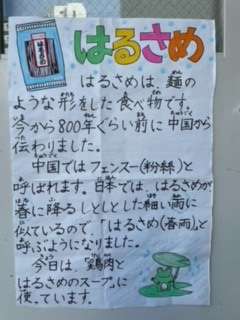 はるさめ
はるさめは、麺の
ような形をした食べ物です。
今から800年ぐらい前に中国から
伝わりました。
中国ではフェンスー(粉絲)と
呼ばれます。日本では、はるさめが
春に降るしとしとした細い雨に
似ているので、「はるさめ(春雨)」と
呼ぶようになりました。
今日は、「鶏肉と
はるさめのスープ」に
使っています。